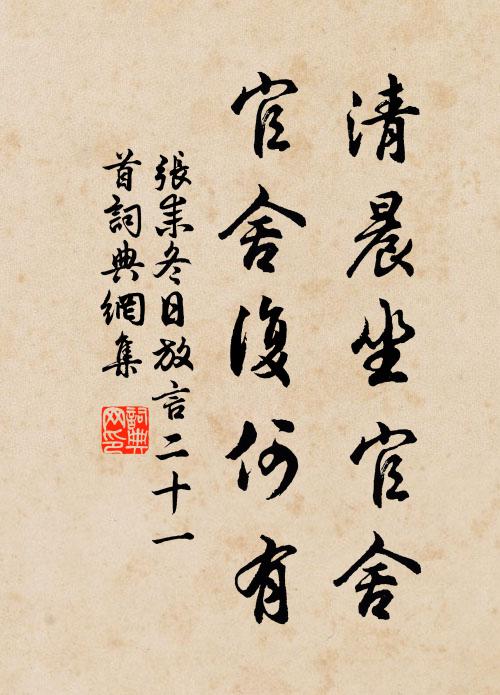 清晨坐官舍
官舍復何有
張耒冬日放言二十一
首詞典網集
詞典
网印